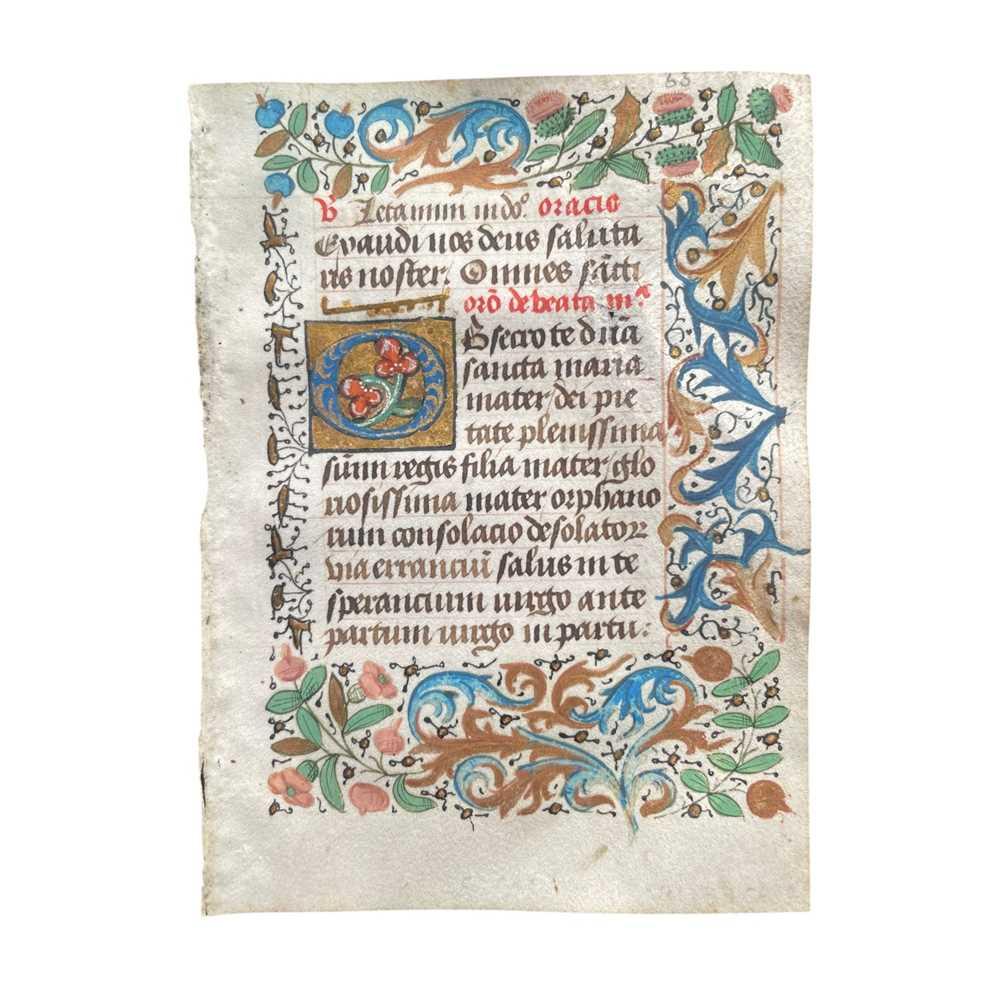 63
V Letamini in dō. oracio
Exaudi nos deus saluta
ris noster. Omnes sāti
orō de beata mᵃ
Obsecro te dn̄a
sancta maria
mater dei pie
tate plenissima
sūmi regis filia mater glo
riosissima mater orphano
rum consolacio desolatoꝝ
via erranciū salus in te
sperancium uirgo ante
partum uirgo in partu: